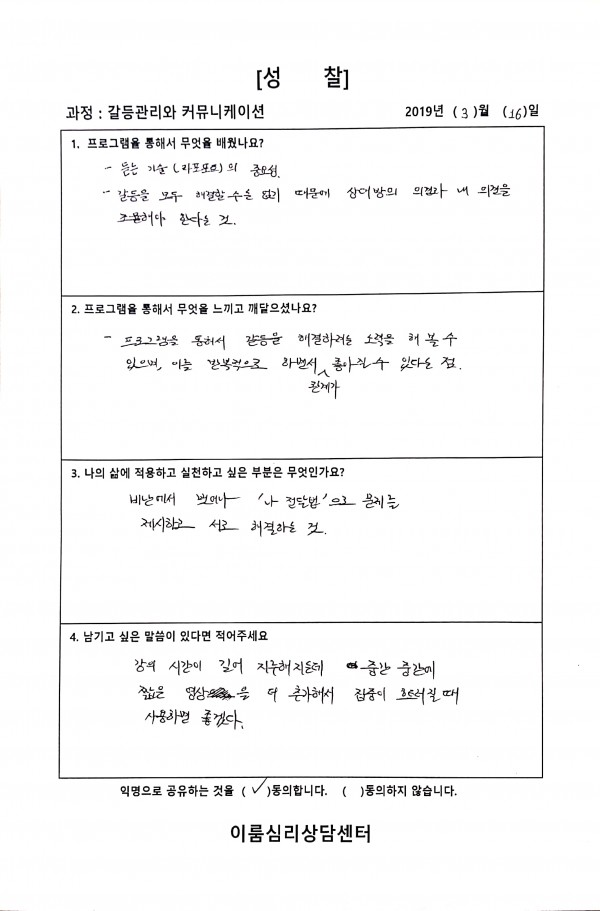 [성 찰]
과정 : 갈등관리와 커뮤니케이션 2019년 ( 3 )월 ( 16 )일
1. 프로그램을 통해서 무엇을 배웠나요?
- 듣는 기술 ( )의 중요성.
- 갈등을 모두 해결할 수는 없기 때문에 상대방의 의견과 내 의견을
조율해야 한다는 것.
2. 프로그램을 통해서 무엇을 느끼고 깨달으셨나요?
- 프로그램을 통해서 갈등을 해결하려는 노력을 해 볼 수
있으며, 이를 반복적으로 하면서 관계가 좋아질 수 있다는 점.
3. 나의 삶에 적용하고 실천하고 싶은 부분은 무엇인가요?
비난에서 벗어나 '나 전달법'으로 문제를
제시하고 서로 해결하는 것.
4. 남기고 싶은 말씀이 있다면 적어주세요
강의 시간이 길어 지루해지는데 중간 중간에
짧은 영상을 더 추가해서 집중이 흐트러질 때
사용하면 좋겠다.
익명으로 공유하는 것을 ( ✓ )동의합니다. ( )동의하지 않습니다.
이룸심리상담센터